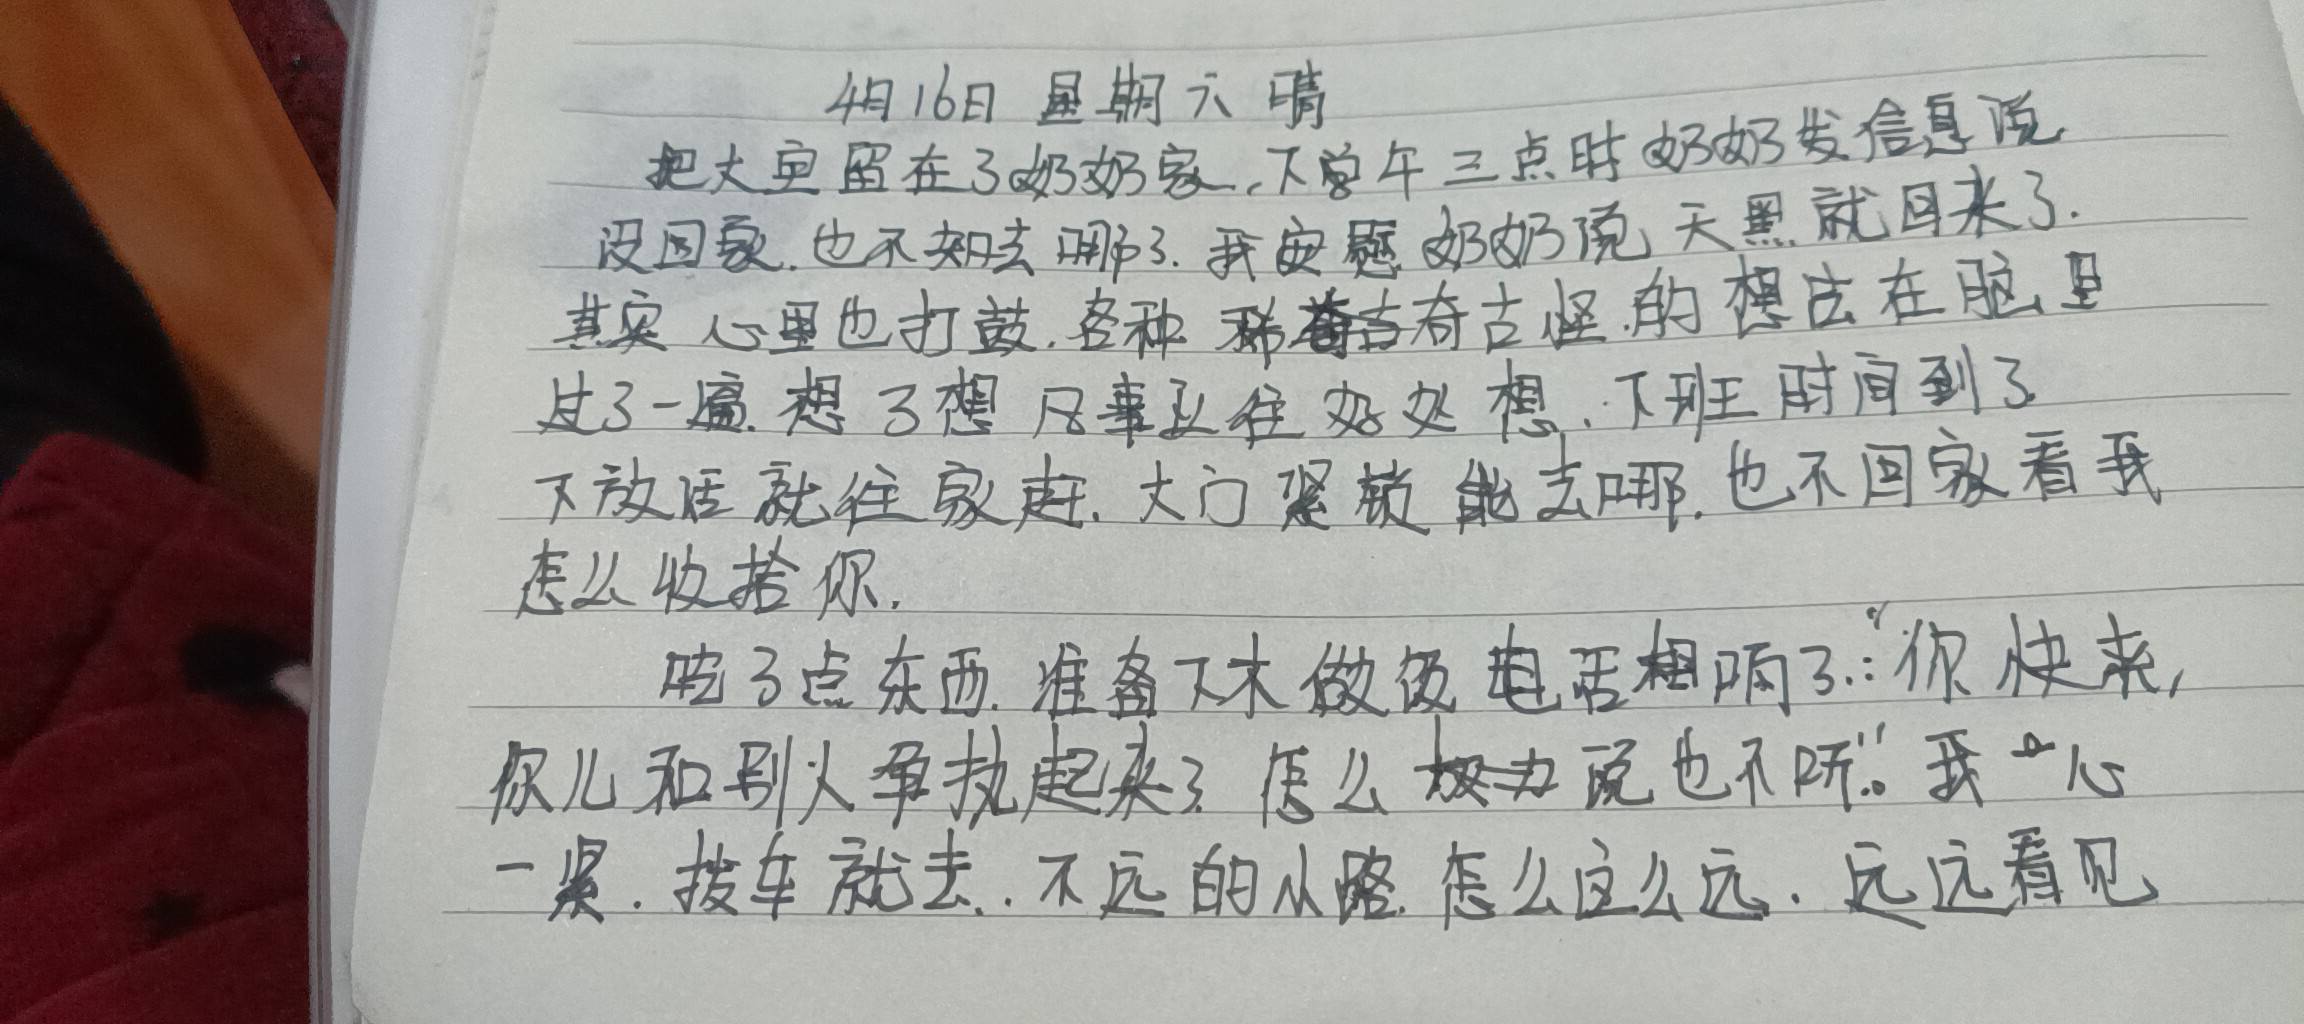 4月16日 星期六 晴
把大宝留在了奶奶家.下午三点时奶奶发信息说
没回家.也不知去哪了.我安慰奶奶说天黑就回来了.
其实心里也打鼓.各种稀奇古怪的想法在脑里
过了一遍.想了想凡事都往好处想.下班时间到了
下放话就往家赶.大门紧锁能去哪.也不回家看我
怎么收拾你.
吃了点东西.准备下木做饭电话响了:“你快来,
你儿和别人争执起来了怎么说也不听”.我心
一紧.拨车就去.不远的小路.怎么这么远.远远看见